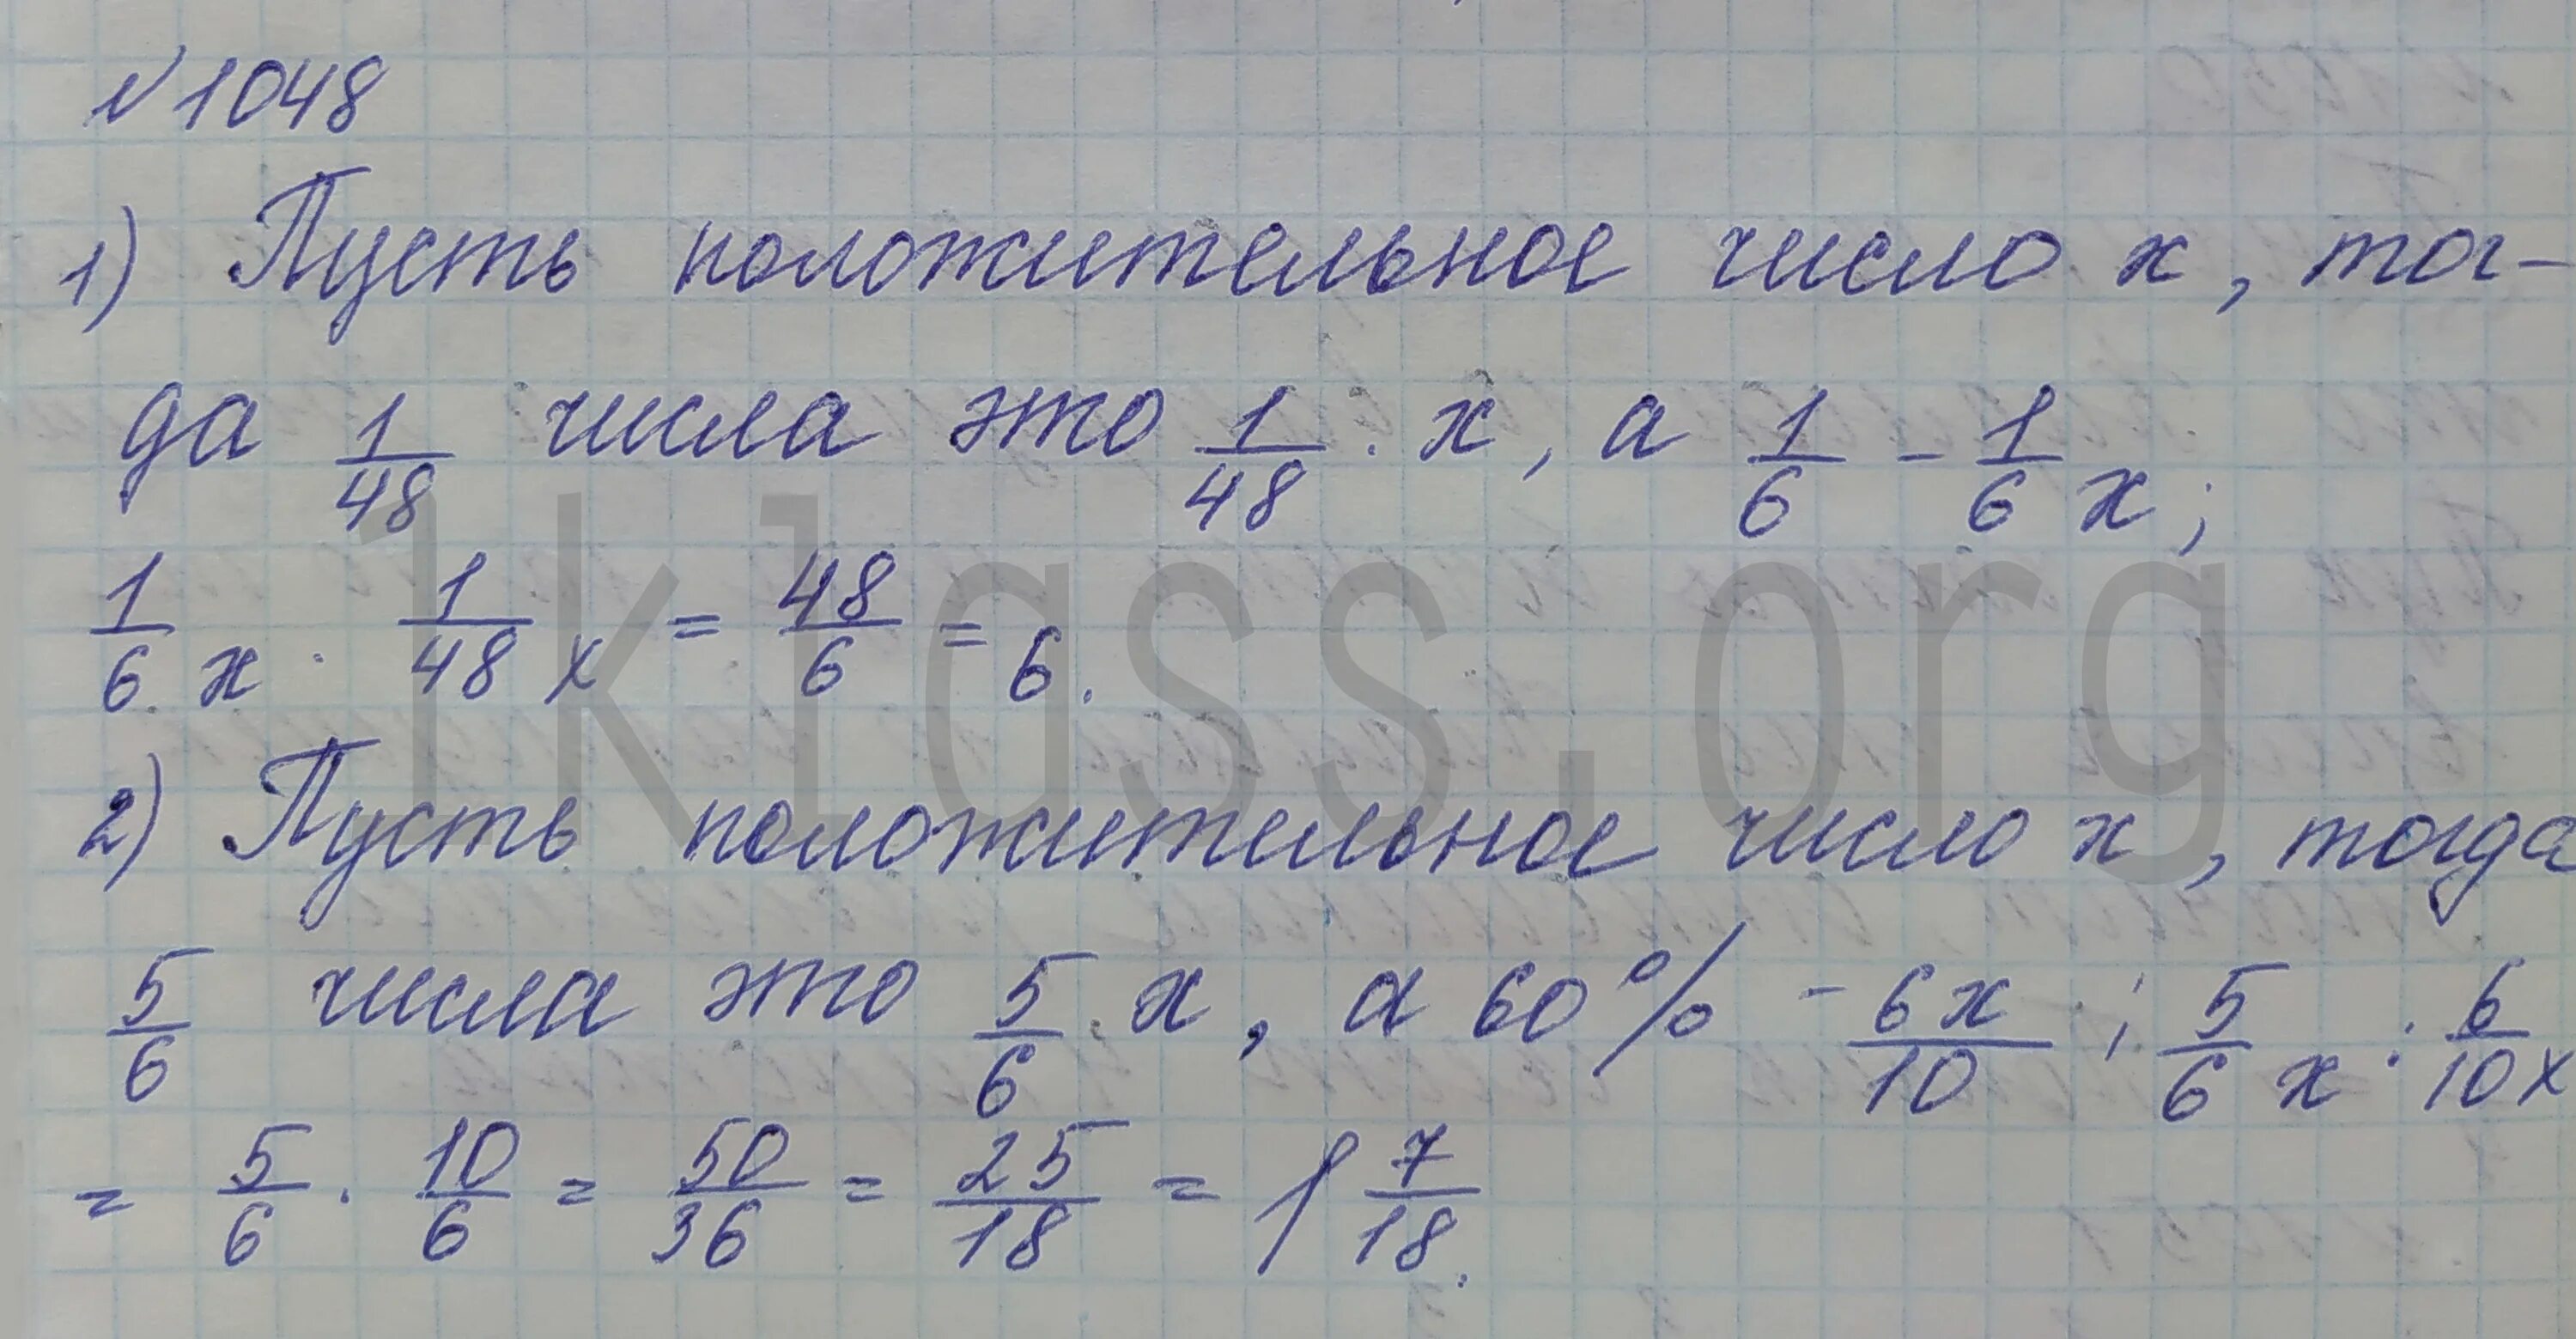 №1048
1) Пусть положительное число х, тог-
да 1/48 числа это 1/48 · х, а 1/6 - 1/6 х;
1/6 х · 1/48 х = 48/6 = 6.
2) Пусть положительное число х, тогда
5/6 числа это 5/6 · х, а 60% - 6х/10 ; 5/6 х : 6/10 х
= 5/6 · 10/6 = 50/36 = 25/18 = 1 7/18.
1klass.org